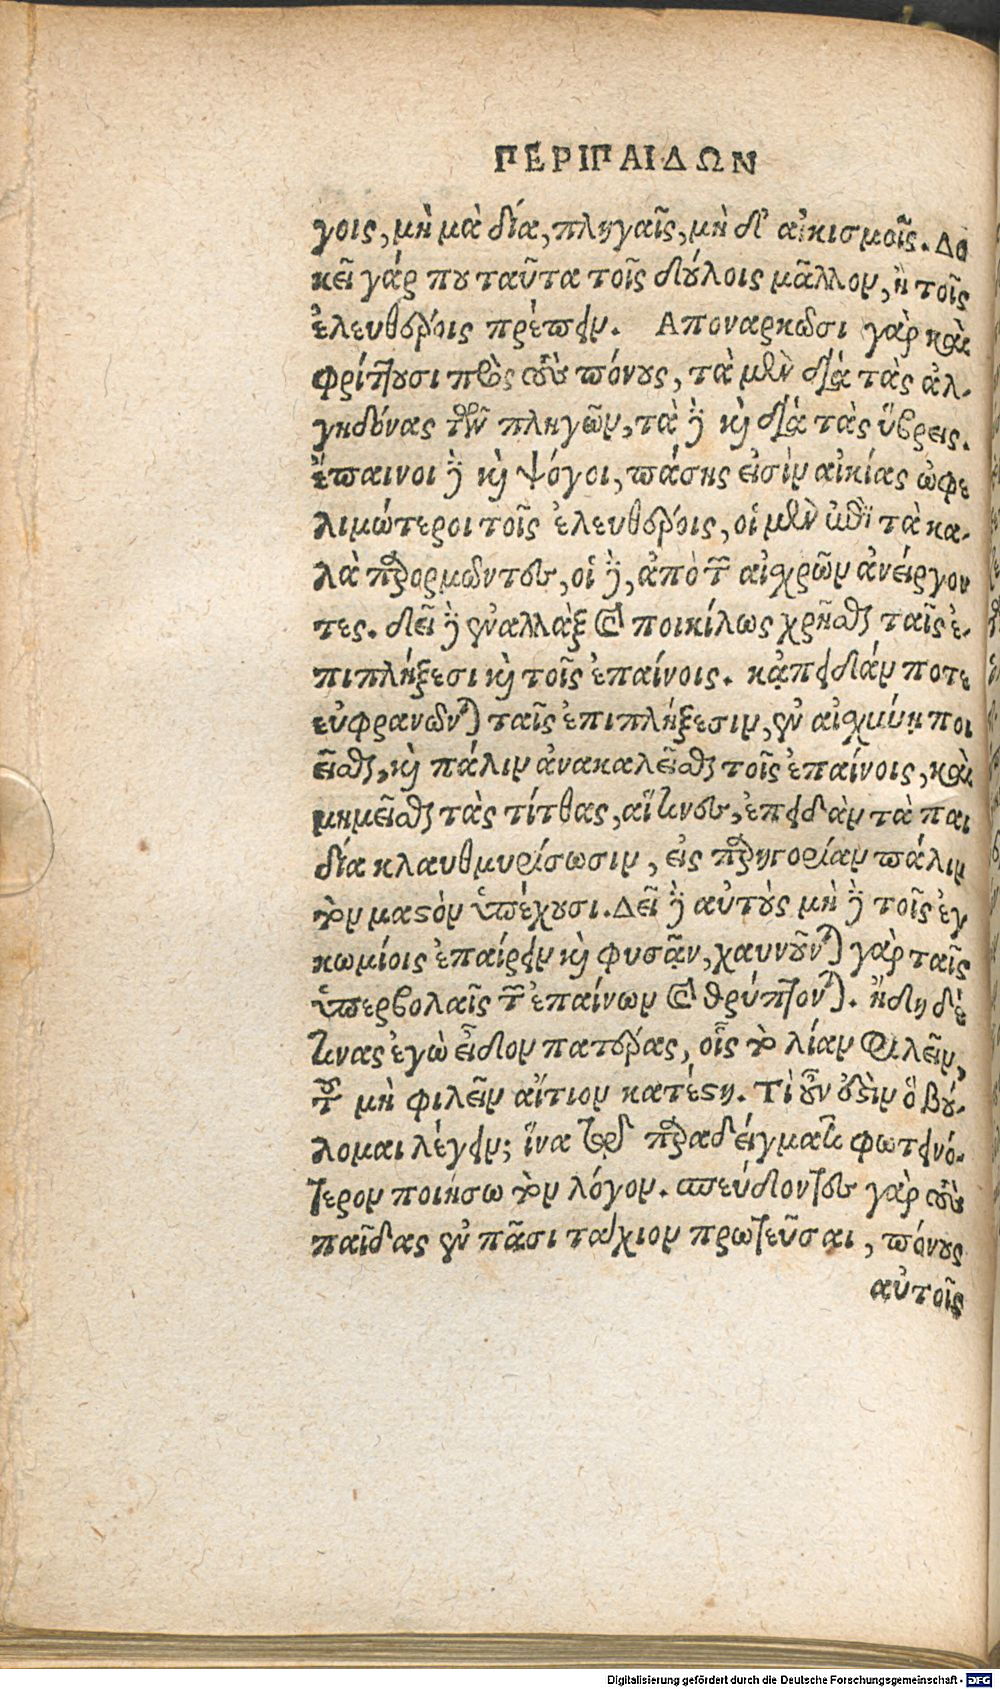 ΠΕΡΙ ΠΑΙΔΩΝ
γοις, μὴ μὰ δία, πληγαῖς, μὴ δι' αἰκισμοῖς. Δο
κεῖ γάρ που ταῦτα τοῖς δούλοις μᾶλλον, ἢ τοῖς
ἐλευθέροις πρέπειν. Αποναρκῶσι γὰρ καὶ
φρίττουσι πρὸς τοὺς πόνους, τὰ μὲν διὰ τὰς ἀλ-
γηδόνας τῶν πληγῶν, τὰ δὲ καὶ διὰ τὰς ὕβρεις.
ἔπαινοι δὲ καὶ ψόγοι, πάσης εἰσὶν αἰκίας ὠφε
λιμώτεροι τοῖς ἐλευθέροις, οἱ μὲν ἐπὶ τὰ κα-
λὰ παρορμῶντες, οἱ δὲ, ἀπὸ τῶν αἰσχρῶν ἀνείργον
τες. δεῖ δὲ ἐναλλὰξ καὶ ποικίλως χρῆσθαι ταῖς ἐ-
πιπλήξεσι καὶ τοῖς ἐπαίνοις. κἀπειδάν ποτε
εὐφρανῶνται ταῖς ἐπιπλήξεσιν, ἐν αἰσχύνῃ ποι
εῖσθαι, καὶ πάλιν ἀνακαλεῖσθαι τοῖς ἐπαίνοις, καὶ
μιμεῖσθαι τὰς τίτθας, αἵτινες, ἐπειδὰν τὰ παι
δία κλαυθμυρίσωσιν, εἰς παρηγορίαν πάλιν
τὸν μαστὸν ὑπέχουσι. Δεῖ δὲ αὐτοὺς μὴ δὲ τοῖς ἐγ
κωμίοις ἐπαίρειν καὶ φυσᾷν, χαυνοῦνται γὰρ ταῖς
ὑπερβολαῖς τῶν ἐπαίνων καὶ θρύπτονται. ἤδη δέ
τινας ἐγὼ εἶδον πατέρας, οἷς τὸ λίαν φιλεῖν,
τοῦ μὴ φιλεῖν αἴτιον κατέστη. Τὶ οὖν ἐστὶν ὃ βού-
λομαι λέγειν; ἵνα τῷ παραδείγματι φωτεινό-
τερον ποιήσω τὸν λόγον. σπεύδοντες γὰρ τοὺς
παῖδας ἐν πᾶσι τάχιον πρωτεῦσαι, πόνους
αὐτοῖς
Digitalisierung gefördert durch die Deutsche Forschungsgemeinschaft - DFG